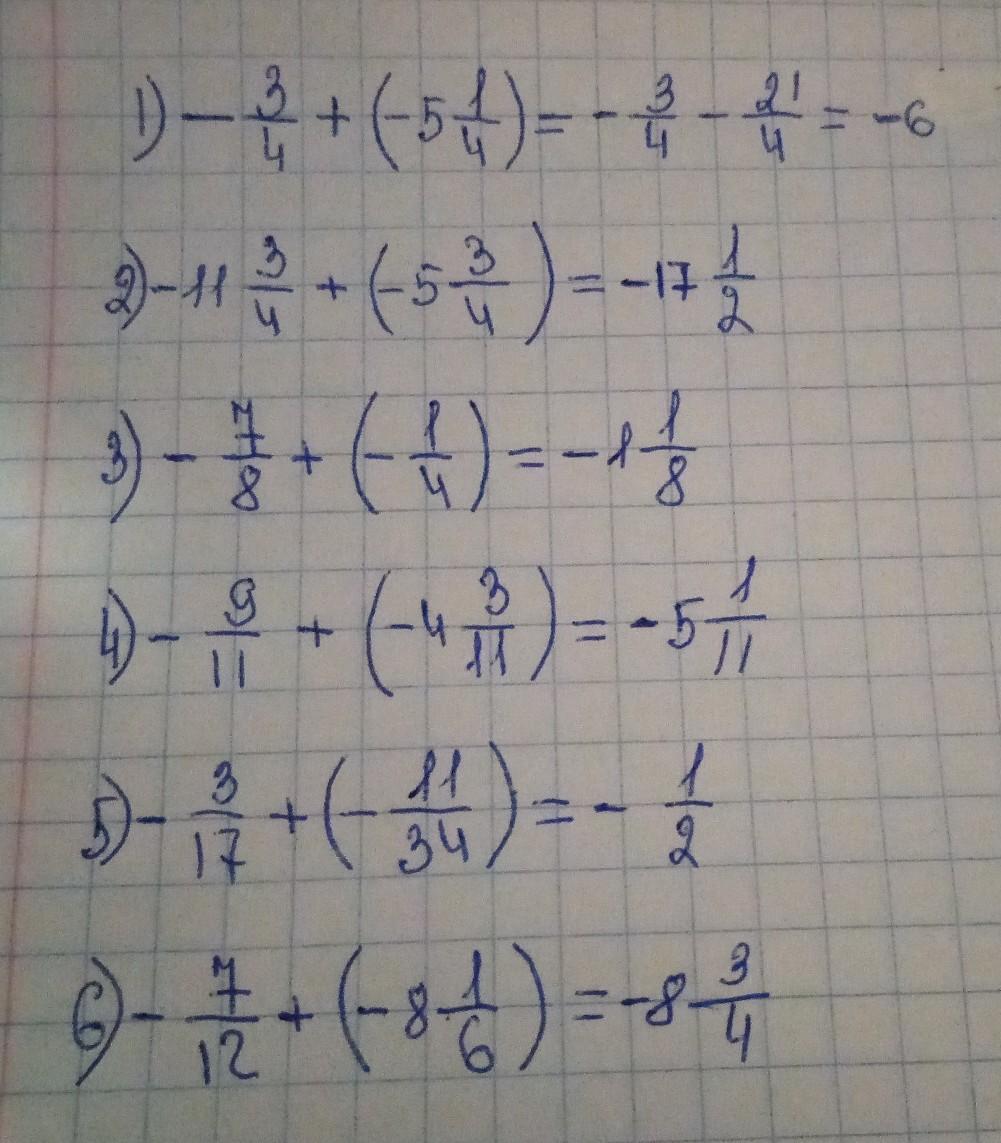 1) - 3/4 + (-5 1/4) = - 3/4 - 21/4 = -6
2) -11 3/4 + (-5 3/4) = -17 1/2
3) - 7/8 + (- 1/4) = -1 1/8
4) - 9/11 + (-4 3/11) = -5 1/11
5) - 3/17 + (- 11/34) = - 1/2
6) - 7/12 + (-8 1/6) = -8 3/4